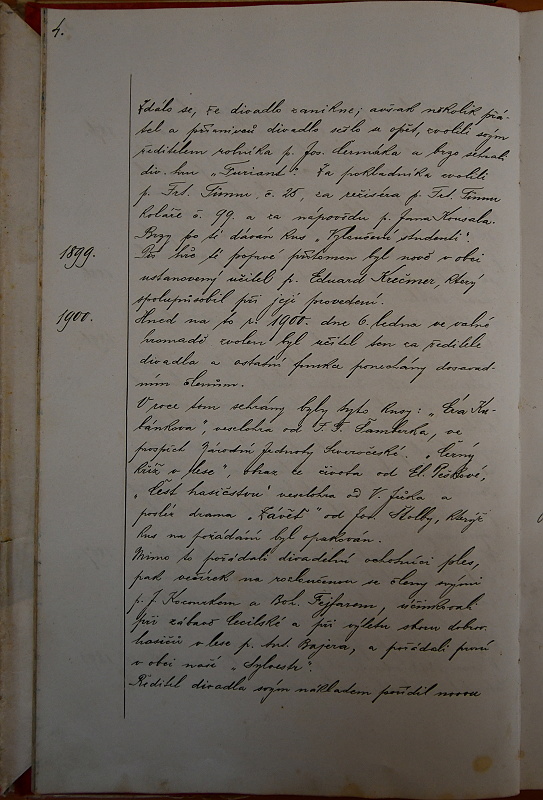 4.
Zdálo se, že divadlo zanikne; avšak několik přá-
tel a příznivců divadla sešlo se opět, zvolili svým
ředitelem rolníka p. Jos. Čermáka a brzo sehráli
div. hru „Furiant“. Za pokladníka zvolili
p. Frt. Šimu č. 25, za režiséra p. Frt. Šimu
koláře č. 99 a za nápovědu p. Jana Kousala.
Brzy po té dáván kus „Vyloučení studenti“.
1899.
Při hře té poprvé přítomen byl nově v obci
ustanovený učitel p. Eduard Krečmer, který
spolupůsobil při její provedení.
1900.
Hned na to r. 1900. dne 6. ledna ve valné
hromadě zvolen byl učitel ten za ředitele
divadla a ostatní funkce ponechány dosavad-
ním členům.
V roce tom sehrány byly tyto kusy: „Eva Ku-
bánkova“, veselohra od F. F. Šamberka, ve
prospěch Národní Jednoty Severočeské. „Černý
kříž v lese“, obraz ze života od El. Peškové,
„Čest hasičstvu“ veselohra od V. Jička a
posléz drama „Závěť“ od Jos. Štolby, kterýž
kus na požádání byl opakován.
Mimo to pořádali divadelní ochotníci ples,
pak večírek na rozloučenou se členy svými
p. J. Kocourkem a Boh. Fejfarem, účinkovali
při zábavě Cecilské a při výletu sboru dobro.
hasičů v lese p. Ant. Bajera, a pořádali první
v obci naší „Sylvestr“.
Ředitel divadla svým nákladem pořídil novou